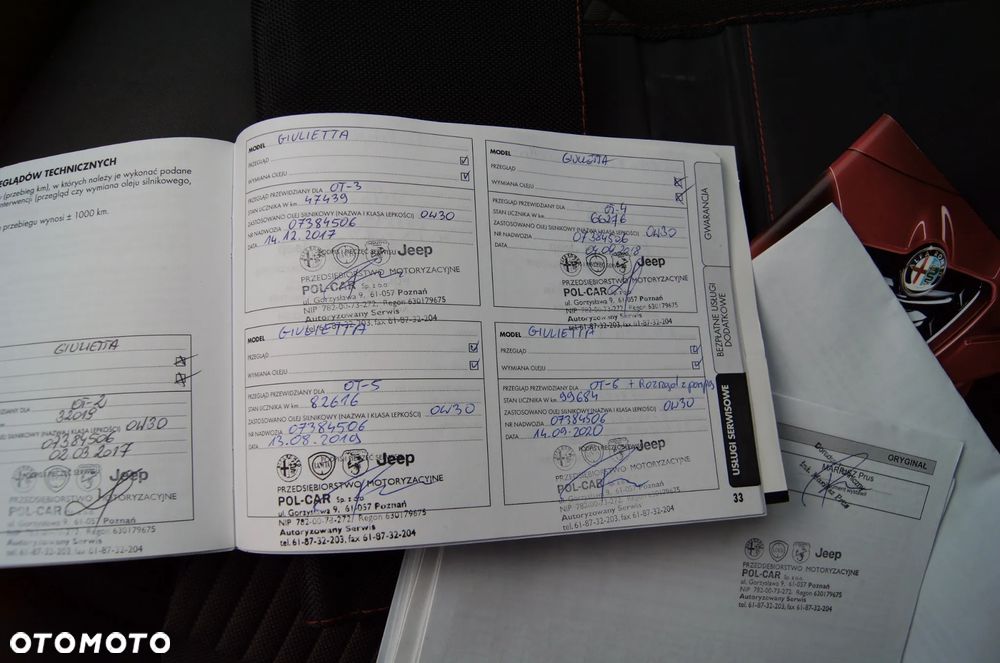 EGLĄDÓW TECHNICZNYCH
(przebieg km), w których należy je wykonać podane
interwencji (przegląd czy wymiana oleju silnikowego,
przebiegu wynosi ± 1000 km.
GIULIETTA
DZIANY DLA OT-2
32019
SILNIKOWY (NAZWA I KLASA LEPKOŚCI) 0W30
07384506
02.03.2017
Jeep
PRZEDSIĘBIORSTWO MOTORYZACYJNE
POL-CAR Sp. z o.o.
ul. Gorzysława 9, 61-057 Poznań
NIP 782-00-73-272, Regon 630179675
Autoryzowany Serwis
tel. 61-87-32-203, fax 61-87-32-204
MODEL GIULIETTA
PRZEGLĄD
WYMIANA OLEJU
PRZEGLĄD PRZEWIDZIANY DLA OT-3
STAN LICZNIKA W km 47439
ZASTOSOWANO OLEJ SILNIKOWY (NAZWA I KLASA LEPKOŚCI) 0W30
NR NADWOZIA 07384506
DATA 14.12.2017
Jeep
PRZEDSIĘBIORSTWO MOTORYZACYJNE
POL-CAR Sp. z o.o.
ul. Gorzysława 9, 61-057 Poznań
NIP 782-00-73-272, Regon 630179675
Autoryzowany Serwis
tel. 61-87-32-203, fax 61-87-32-204
MODEL GIULIETTA
PRZEGLĄD
WYMIANA OLEJU
PRZEGLĄD PRZEWIDZIANY DLA OT-4
STAN LICZNIKA W km 66276
ZASTOSOWANO OLEJ SILNIKOWY (NAZWA I KLASA LEPKOŚCI) 0W30
NR NADWOZIA 07384506
DATA
Jeep
PRZEDSIĘBIORSTWO MOTORYZACYJNE
POL-CAR Sp. z o.o.
ul. Gorzysława 9, 61-057 Poznań
NIP 782-00-73-272, Regon 630179675
Autoryzowany Serwis
tel. 61-87-32-203, fax 61-87-32-204
MODEL GIULIETTA
PRZEGLĄD
WYMIANA OLEJU
PRZEGLĄD PRZEWIDZIANY DLA OT-5
STAN LICZNIKA W km 82616
ZASTOSOWANO OLEJ SILNIKOWY (NAZWA I KLASA LEPKOŚCI) 0W30
NR NADWOZIA 07384506
DATA 13.08.2019
Jeep
PRZEDSIĘBIORSTWO MOTORYZACYJNE
POL-CAR Sp. z o.o.
ul. Gorzysława 9, 61-057 Poznań
NIP 782-00-73-272, Regon 630179675
Autoryzowany Serwis
tel. 61-87-32-203, fax 61-87-32-204
MODEL GIULIETTA
PRZEGLĄD
WYMIANA OLEJU
PRZEGLĄD PRZEWIDZIANY DLA OT-6 + Rozrząd z pompą
STAN LICZNIKA W km 99684
ZASTOSOWANO OLEJ SILNIKOWY (NAZWA I KLASA LEPKOŚCI) 0W30
NR NADWOZIA 07384506
DATA 14.09.2020
Jeep
PRZEDSIĘBIORSTWO MOTORYZACYJNE
POL-CAR Sp. z o.o.
ul. Gorzysława 9, 61-057 Poznań
NIP 782-00-73-272, Regon 630179675
Autoryzowany Serwis
tel. 61-87-32-203, fax 61-87-32-204
GWARANCJA
BEZPŁATNE USŁUGI
DODATKOWE
USŁUGI SERWISOWE
33
ORYGINAŁ
MARIUSZ Prus
Jeep
PRZEDSIĘBIORSTWO MOTORYZACYJNE
POL-CAR Sp. z o.o.
ul. Gorzysława 9, 61-057 Poznań
NIP 782-00-73-272, Regon 630179675
Autoryzowany Serwis
tel. 61-87-32-203, fax 61-87-32-204
OTOMOTO